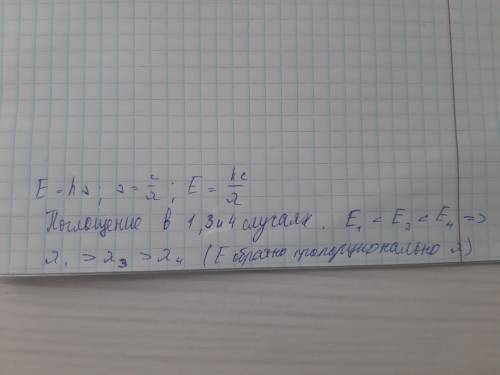 E = hν; ν = c/λ; E = hc/λ
Поглощение в 1,3и4 случаях. E₁ < E₃ < E₄ =>
λ₁ > λ₃ > λ₄ (E обратно пропорционально λ)